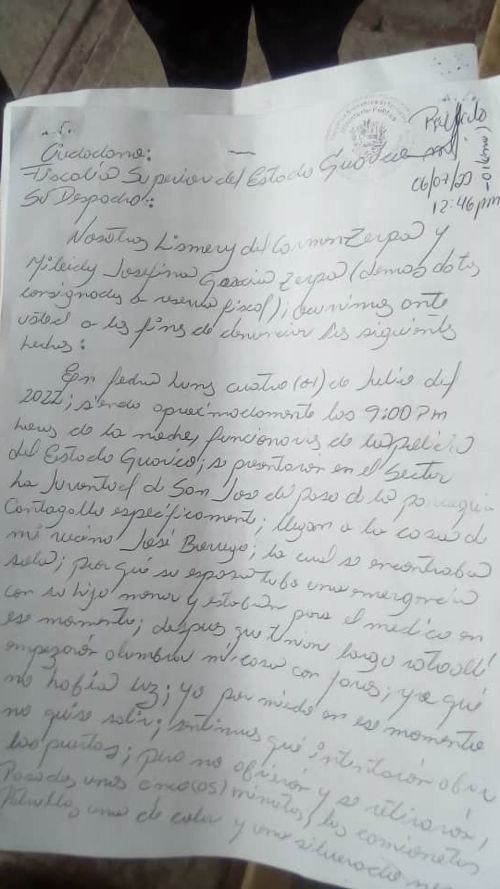 Ciudadano:
Fiscalia Superior del Estado Guarico
Su Despacho:
Recibido
06/07/22
12:46pm
Nosotros Lismery del Carmen Zerpa y
Mileidy Josefina Garcia Zerpa (demas datos
consignados a reserva fiscal); acurimos ante
usted a los fines de denunciar los siguientes
hechos:
En fecha luns cuatro (04) de Julio del
2022; siendo aproximadamente las 9:00 Pm
horas de la noche, funcionarios de la policia
del Estado Guarico; se presentaron en el Sector
La Juventud de San Jose de la parroquia
Cantagallo especificamente; llegan a la casa de
mi vecino José Borrego; la cual se encontraba
sola; por qué su esposa tubo una emergencia
con su hijo menor y estaban para el medico en
ese momento; despues que tenian largo rato alli
empezarón alumbrar mi casa con foros; ya qué
no habia luz; yo por miedo en ese momento
no quise salir; sentimos qué intentarón abrir
las puertas; pero no abrierón y se retirarón,
Pasados unos cinco (05) minutos, las camionetas
Patrullas, una de color y una silverado